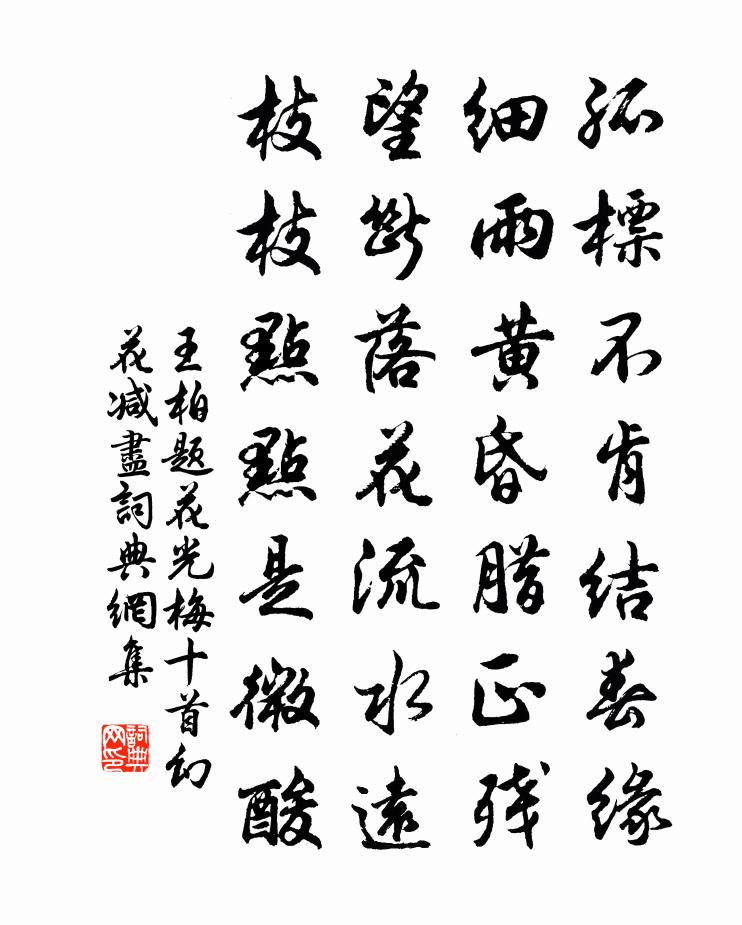 孤標不肯結春緣
細雨黄昏腊正残
望斷落花流水遠
枝枝點點是微酸
王柏題花光梅十首幻
花减盡詞典網集
詞典网印